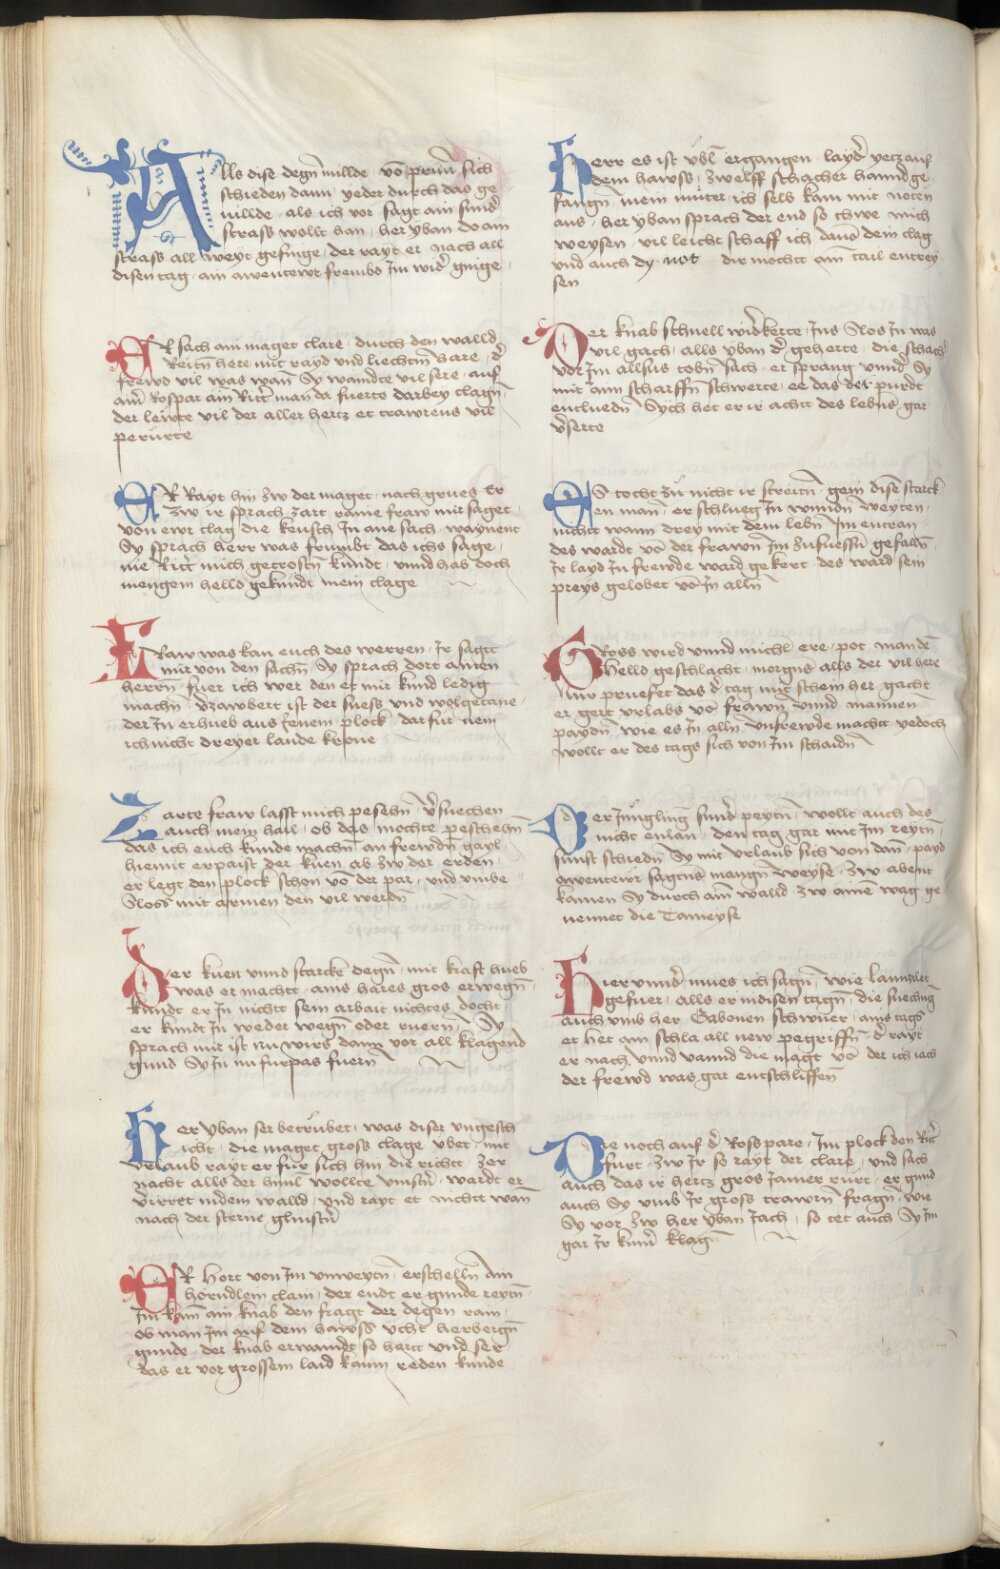 Alls dise degn̄ millde · vō prunn̄ sich
schieden dann · yeder durch das ge
uillde · als ich vor sagt ain sund̄
strass wollt han · her yban do ain
strass all weyt gefinge · der rayt er nach all
disen tag · ain awentewr frembs Im wid̄ gienge ·
ER sach ain maget clare · durch den walld
Reitn̄ here mit rayd vnd liechtm̄ hare · d̄
frewd vil was wan Sy wainte vil sere · auf
aim̄ Rospar ain Ritr̄ man da fuerte darbey clagn̄ ·
der lewte vil der aller hertz et trawrens vil
perurte
ER Rayt hin zw der maget · nach grues Er
zw ir sprach zart raine fraw mir saget ·
von ewr clag die keusch In ane sach · waynent
Sy sprach herr was frumbt das ichs sage ·
nie Ritr̄ mich getrostn̄ kundt · vnnd has doch
mengem helld gekundt mein clage
Fraw was kan euch des werren · Ir sagtt
mir von den sachn̄ · Sy sprach dort ainen
herrn̄ fuer ich wer den et mir kund ledig
machn̄ · v̄zawbert ist der suess vnd wolgetane ·
der In erhueb aus Ienem plock · dar fur nem
ich nicht dreyer lande krone
Zarte fraw lasst mich pesehn̄ · v̄suechen
auch mein hail · ob das mochte peschehn̄
das ich euch kunde machn̄ an frewdn̄ gayl ·
hiemit erpaist der kuen ab zw der erden ·
er legt den plock schon vō der par · vnd vmbe
Sloss mit armen den vil werdn̄
Der kuen vnnd starcke degn̄ · mit kraft hueb
was er machtt · ains hares gros erwegn̄ ·
kundt er In nichtt sein arbait nichtes docht ·
er kundt In weder wegn̄ oder ruern̄ · Sy
sprach mir ist nu wirs dann vor all klagend
gund Sy In nu furpas fuern̄
Her yban ser betrubet · was diser vngesch
icht · die maget gross clage vbet · mit
vrlaub rayt er fur sich hin die richtt · zer
nacht alls der himl̄ wollte vinstn̄ · wardt er
virret in dem walld · vnd rayt et nichtt wan̄
nach der sterne glinstn̄
ER hort von Im vnweytn̄ · erschelln̄ Ain
horndlein clain · der endt er gunde reytn̄ ·
Im kam̄ ain knab den fragt der degen rain ·
ob man Im auf dem hawss ycht herbergn̄
gunde · der knab erwaindt so hart vnd ser
das er vor grossem laid kaum reden kunde
Herr es ist vbl̄ ergangen · layd̄ yetz auf
dem hawss · zwelff schacher hannd ge
fangn̄ · mein muter ich selb kam mit noten
aus · her yban sprach der end so thwe mich
weysen · vil leicht schaff ich dans dein clag
vnd auch dy not · dir mochtt ain tail entrey
sen
Der knab schnell wid̄kerte · Ins Slos In was
vil gach · alls yban d̄ geherte · die schach̄
vor Im allsus tobn̄ sach · er sprang vnnd̄ Sy
mit aim scharffn̄ schwerte · ee das der purdt
entluedn̄ Sych het er ir achtt des lebn̄s gar
v̄serte
ES tocht zu nicht ir streitn̄ · gein disem starck
en man · er schlueg In wundn̄ weyten ·
nichtt wann drey mit dem lebn̄ Im entran ·
des wardt vō der frawn Im zufuessn̄ gefalln̄ ·
Ir layd In frewde ward gekert · des ward sein
preys gelobet vō In alln̄
Gross wird vnnd michl̄ ere · pot man dē
helld geschlacht · morgens alls der vil here
Nur pruefet das d̄ tag mit schein her gacht
er gert vrlabs vō frawn vnnd mannen
paydn̄ · wie es In alln̄ vnfrewde machtt yedoch
wollt er des tags sich von Im schaidn̄
Der Jungling sund̄ peytn̄ · wollt auch des
nicht enlan · den tag gar mit Im reytn̄ ·
sunst schiedn̄ Sy mit vrlaub sich von dan̄ · payd
awentewr sagtens mangn̄ weyse · zw abent
kamen Sy durch ain̄ walld zw ainē wag ge
nennet die Tameyse
Hier vnnd̄ mues ich sagn̄ · wie lannzilet
gefuer · alls er in disen tagn̄ · die suechung
auch vmb her Gabonen schwuer · ains tags
er het ain schla all new pegriffn̄ · d̄ rayt
er nach vnnd vannd die magt vō der ich iach
der frewd was gar entschliffen̄
Die noch auf d̄ Rosspare · Im plock den Ritr̄
furt · zw Ir so rayt der clare · vnd sach
auch das ir hertz gros Jamer rurt · er gund
auch Sy vmb Ir gross trawrn̄ fragn̄ · wie
Sy vor zw her yban Iach · so tet auch Sy Im
gar Ir kum̄ klagn̄